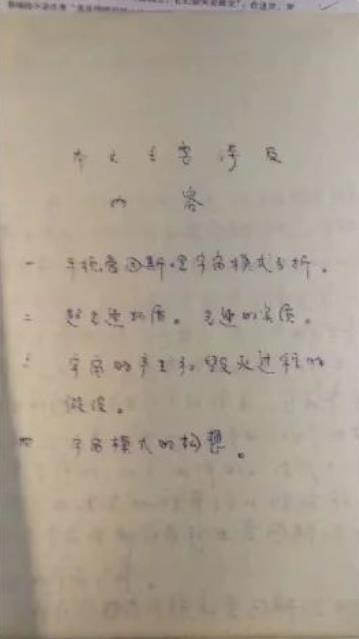 本文主要涉及
内容
一 平根爱因斯坦宇宙模式分析。
二 超光速物质。光速的实质。
三 宇宙的产生和毁灭过程的
假设。
四 宇宙模式的构想。